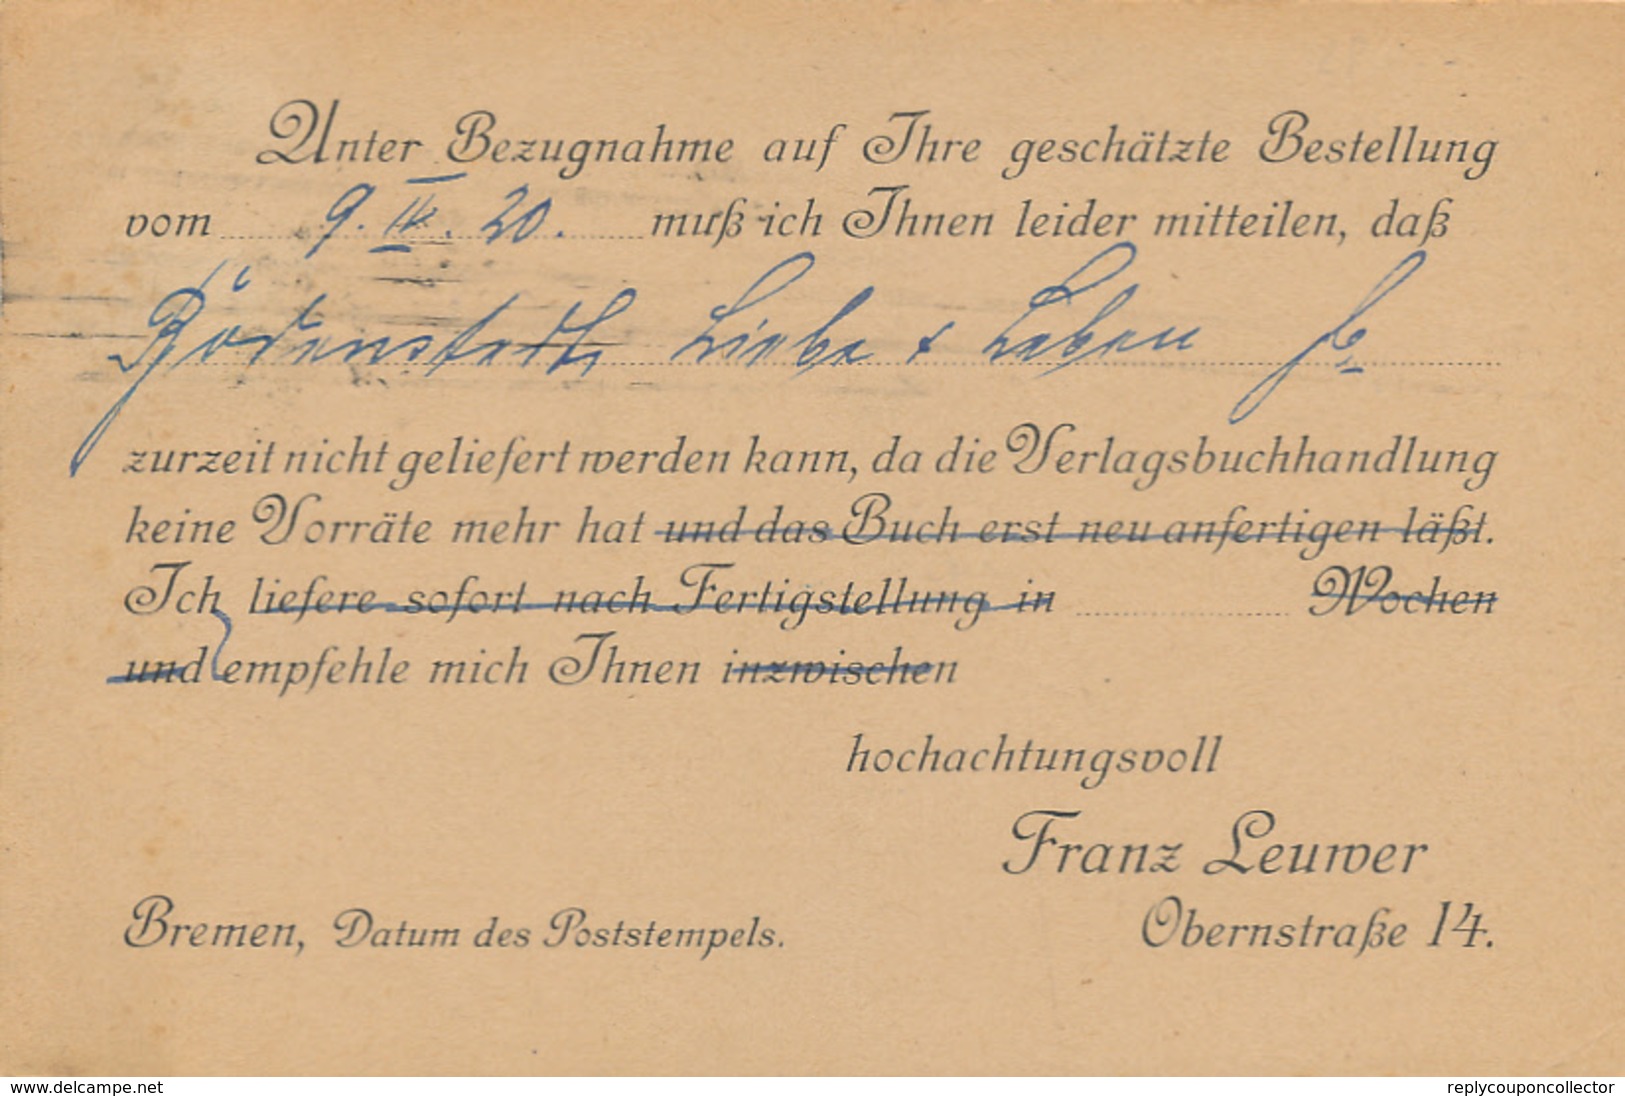 Unter Bezugnahme auf Ihre geschätzte Bestellung
vom 9. IV. 20. muß ich Ihnen leider mitteilen, daß
Liebe & Leben
zurzeit nicht geliefert werden kann, da die Verlagsbuchhandlung
keine Vorräte mehr hat und das Buch erst neu anfertigen läßt.
Ich liefere sofort nach Fertigstellung in Wochen
und empfehle mich Ihnen inzwischen
hochachtungsvoll
Franz Leuwer
Bremen, Datum des Poststempels. Obernstraße 14.
www.delcampe.net replycouponcollector